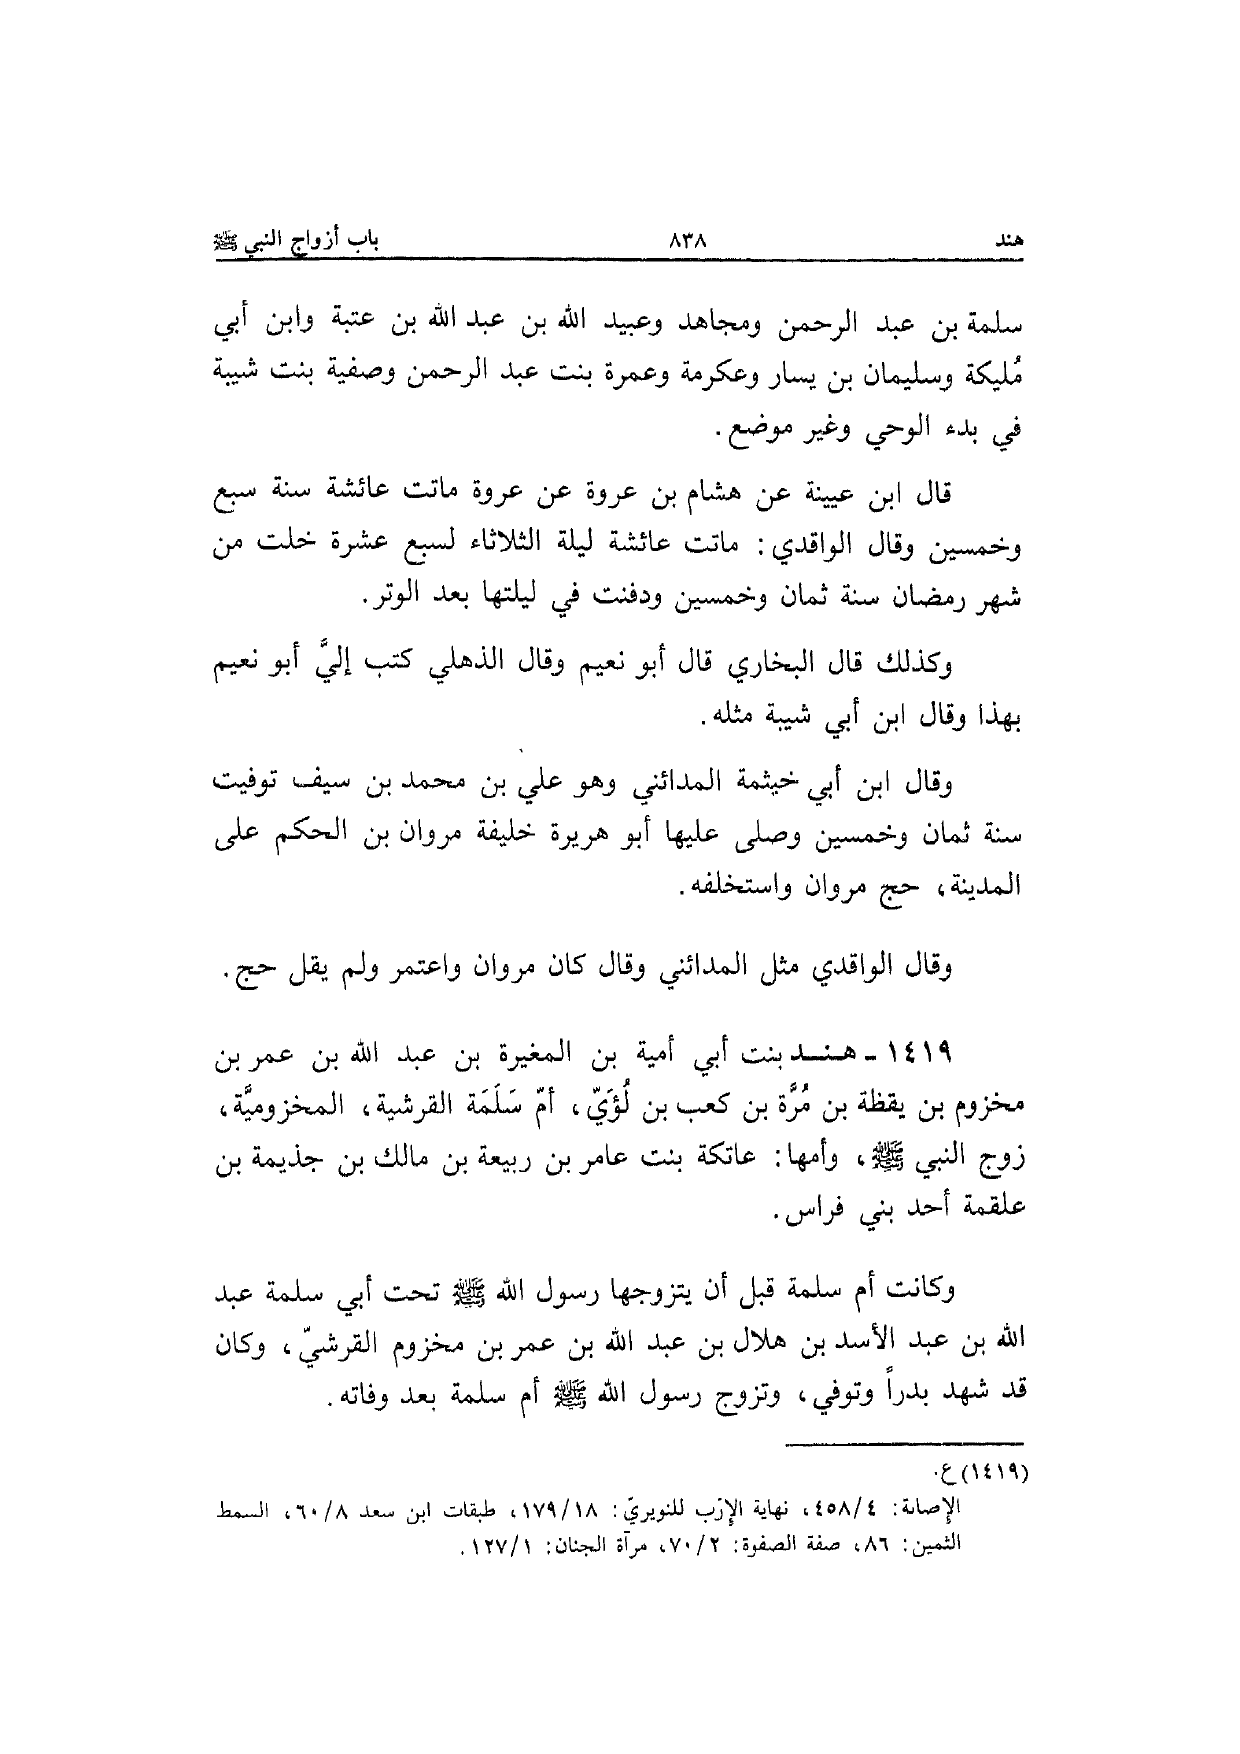 هند ٨٣٨ باب أزواج النبي ﷺ
سلمة بن عبد الرحمن ومجاهد وعبيد الله بن عبد الله بن عتبة وابن أبي
مُليكة وسليمان بن يسار وعكرمة وعمرة بنت عبد الرحمن وصفية بنت شيبة
في بدء الوحي وغير موضع.
قال ابن عيينة عن هشام بن عروة عن عروة ماتت عائشة سنة سبع
وخمسين وقال الواقدي: ماتت عائشة ليلة الثلاثاء لسبع عشرة خلت من
شهر رمضان سنة ثمان وخمسين ودفنت في ليلتها بعد الوتر.
وكذلك قال البخاري قال أبو نعيم وقال الذهلي كتب إليَّ أبو نعيم
بهذا وقال ابن أبي شيبة مثله.
وقال ابن أبي خيثمة المدائني وهو علي بن محمد بن سيف توفيت
سنة ثمان وخمسين وصلى عليها أبو هريرة خليفة مروان بن الحكم على
المدينة، حج مروان واستخلفه.
وقال الواقدي مثل المدائني وقال كان مروان واعتمر ولم يقل حج.
١٤١٩ ـ هـنـد بنت أبي أمية بن المغيرة بن عبد الله بن عمر بن
مخزوم بن يقظة بن مُرَّة بن كعب بن لُؤَيّ، أمّ سَلَمَة القرشية، المخزوميَّة،
زوج النبي ﷺ، وأمها: عاتكة بنت عامر بن ربيعة بن مالك بن جذيمة بن
علقمة أحد بني فراس.
وكانت أم سلمة قبل أن يتزوجها رسول الله ﷺ تحت أبي سلمة عبد
الله بن عبد الأسد بن هلال بن عبد الله بن عمر بن مخزوم القرشيّ، وكان
قد شهد بدراً وتوفي، وتزوج رسول الله ﷺ أم سلمة بعد وفاته.
(١٤١٩) ع.
الإصابة: ٤/ ٤٥٨، نهاية الإرَب للنويريّ: ١٨/ ١٧٩، طبقات ابن سعد ٨/ ٦٠، السمط
الثمين: ٨٦، صفة الصفوة: ٢/ ٧٠، مرآة الجنان: ١/ ١٢٧.